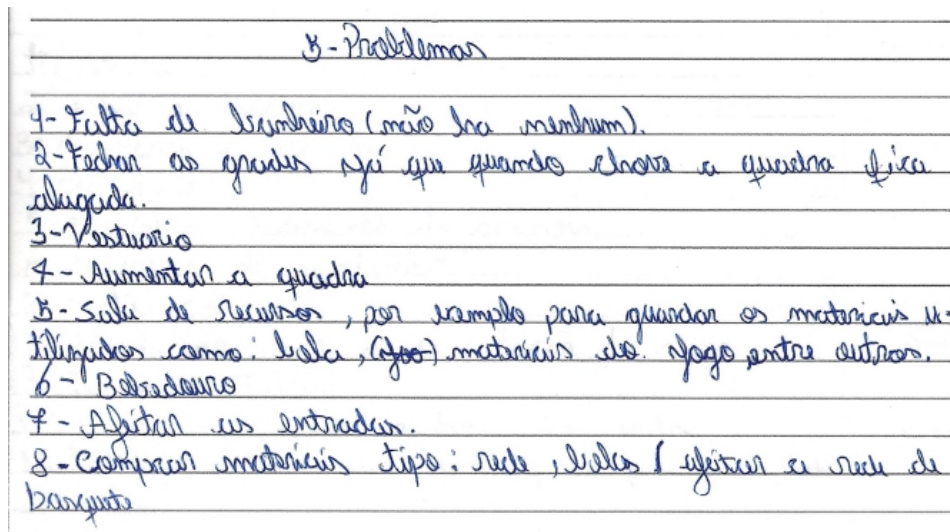 5-Problemas
1-Falta de banheiro (não ha nenhum).
2-Fechar as grades já que quando chove a quadra fica
alagada.
3-Vestuario
4-Aumentar a quadra
5-Sala de recursos, por exemplo para guardar os materiais u-
tilizados como: bola, (joo) materiais do jogo, entre outros.
6-Bebedouro
7-Ajeitar as entradas.
8-Comprar materiais tipo: rede, bolas / ajeitar a rede de
basquete